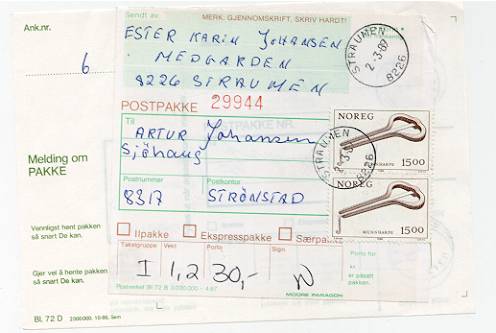 Ank.nr.
6
Melding om
PAKKE
Vennligst hent pakken
så snart De kan.
Gjer vel å hente pakken
så snart De kan.
BL 72 D
Sendt av
MERK. GJENNOMSKRIFT, SKRIV HARDT!
ESTER KARIN JOHANSEN
MEDGARDEN
8226 STRAUMEN
STRAUMEN
2-3-89
8226
POSTPAKKE 29944
Til
ARTUR Johansen
Sjöhaug
Postnummer Postkontor
8817 STRÖNSTAD
NOREG
1500
STRAUMEN
8226
NOREG
MUNNHARPE
1500
Ilpakke Ekspresspakke Særpakke
Takstgruppe Vekt Porto Sign
I 1,2 30,-
Porto
for
kr
er påsatt
pakken.
MOORE PARAGON